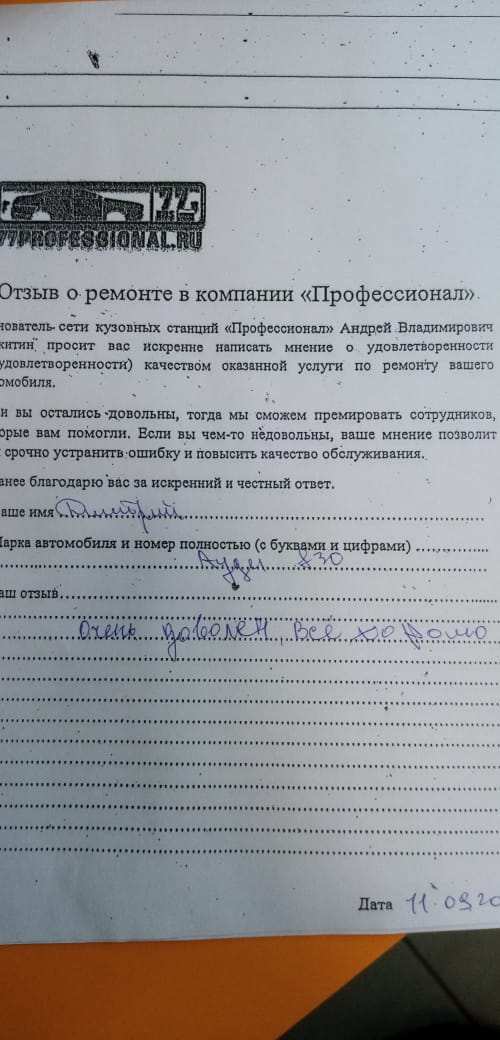 77
RUS
77PROFESSIONAL.RU
Отзыв о ремонте в компании «Профессионал»
нователь сети кузовных станций «Профессионал» Андрей Владимирович
китин просит вас искренне написать мнение о удовлетворенности
удовлетворенности) качеством оказанной услуги по ремонту вашего
омобиля.
и вы остались довольны, тогда мы сможем премировать сотрудников,
орые вам помогли. Если вы чем-то недовольны, ваше мнение позволит
срочно устранить ошибку и повысить качество обслуживания.
анее благодарю вас за искренний и честный ответ.
аше имя Дмитрий
Марка автомобиля и номер полностью (с буквами и цифрами)
Ауди 830
аш отзыв
Очень доволен, всё хорошо
Дата 11.09.20